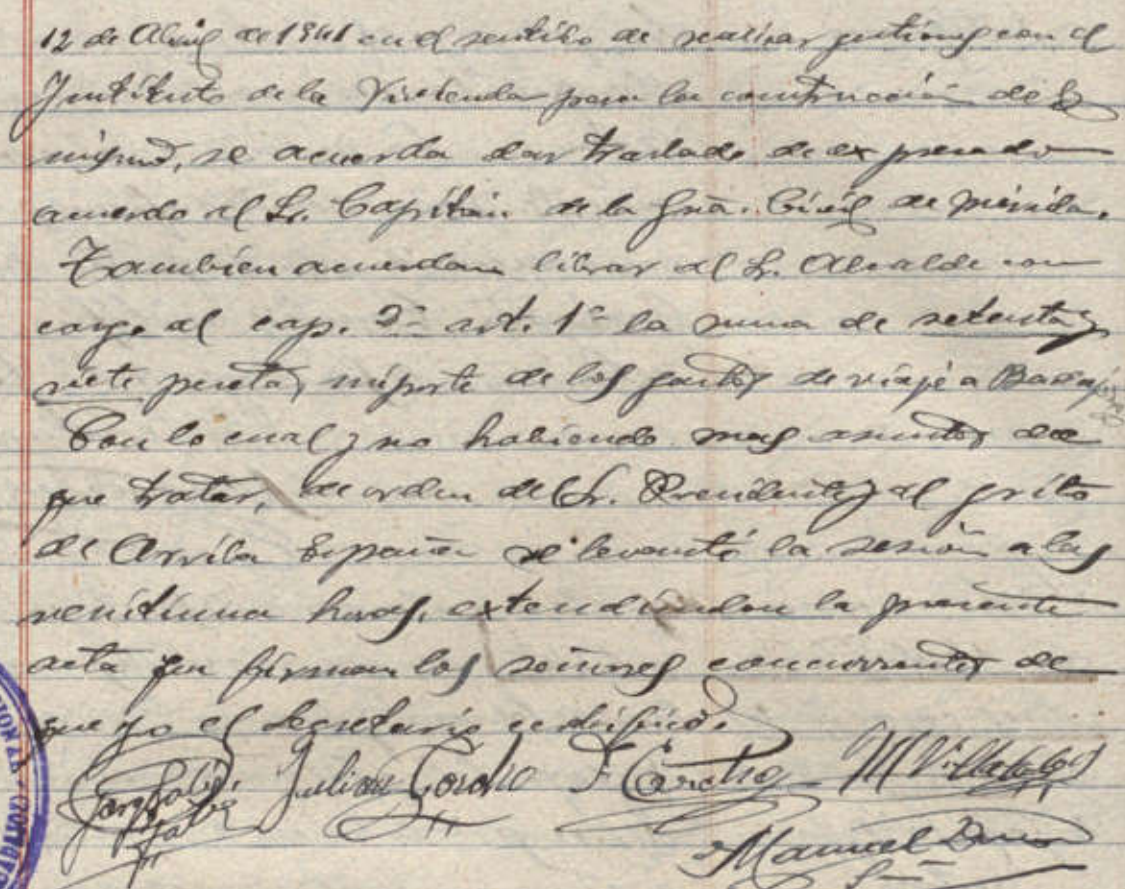 12 de Abril de 1941 en el sentido de realizar gestiones con el
Instituto de la Vivienda para la construcción de la
misma, se acuerda dar traslado de expresado
acuerdo al Sr. Capitán de la Gria. Civil de Mérida.
También acuerdan librar al Sr. Alcalde con
cargo al cap. 2º art. 1º la suma de setenta y
siete pesetas importe de los gastos de viaje a Badajoz
Con lo cual y no habiendo mas asuntos de
que tratar, de orden del Sr. Presidente y al grito
de Arriba España se levantó la sesión a las
veintiuna horas, extendiendose la presente
acta que firman los señores concurrentes de
que yo el Secretario certifico.
Julian Cordo F Manuel